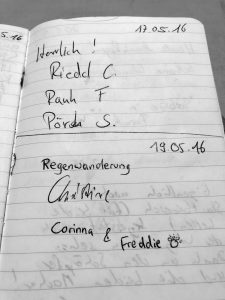 5.16
17.05.16
Herrlich !
Riedel C.
Rauh F
S.
19.05.16
Regenwanderung
Christine
Corinna & Freddie